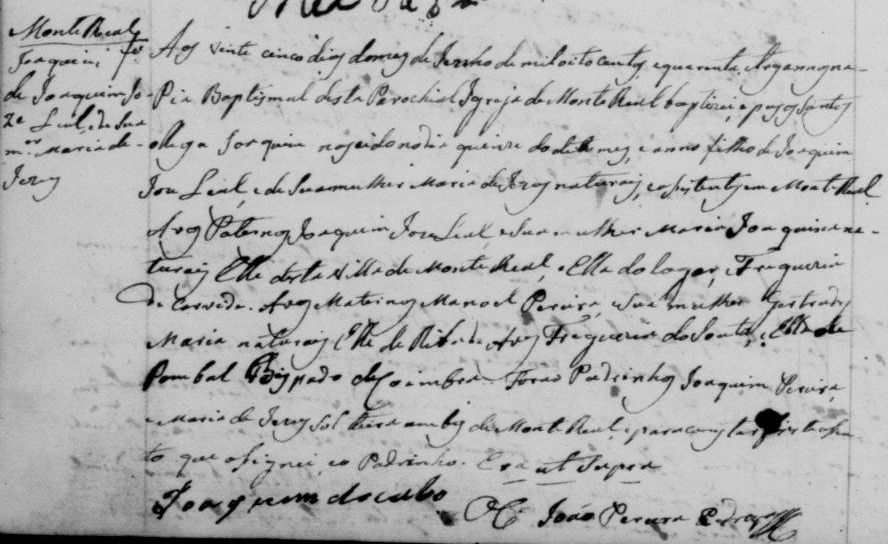 Monte Real
Joaquim fo.
de Joaquim Jo-
ze Leal, e de Sua
mer. Maria de
Jezus
Aos vinte cinco dias do mes de Junho de mil oito centos, e quarenta annos na
Pia Baptismal desta Parochial Igreja de Monte Real baptizei, e puz os Santos
Joaquim nascido no dia quinze do mes, e anno filho de Joaquim
Joze Leal, e de Sua mulher Maria de Jezus naturaes, e asistentes em Monte Real
Avos Paternos Joaquim Joze Leal, e Sua mulher Maria Joaquina na-
turaes Elle desta Villa de Monte Real, e Ella do lugar, e Freguezia
de Carvide. Avos Maternos Manoel Pereira, e Sua mulher Gertrudes
Maria naturaes Elle de Riba de Aves Freguezia do Souto, e Ella de
Pombal Bispado de Coimbra. Forão Padrinhos Joaquim Pereira,
e Maria de Jezus Solteira ambos de Monte Real, e para constar fis este asen-
to que asignei, e o Padrinho. Era ut Supra
Joaquim do
O C. João Pereira